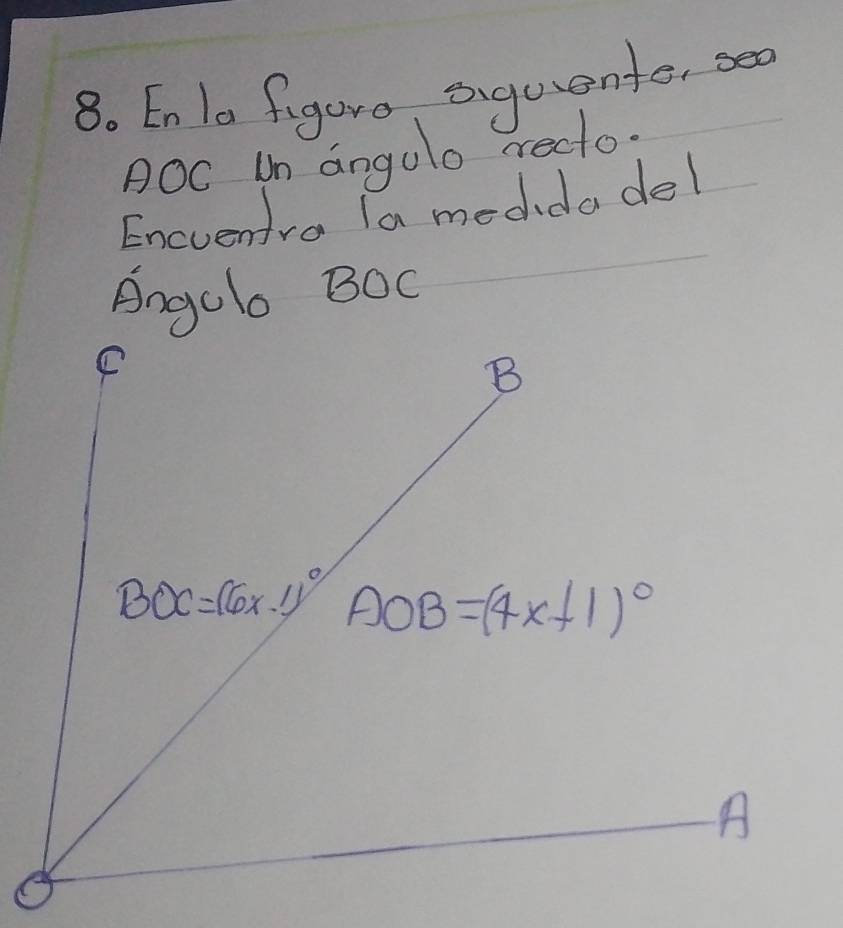 8. En la figura siguiente, sea
AOC un ángulo recto.
Encuentra la medida del
Ángulo BOC
C
B
BOC=(6x-1)°
AOB=(4x+1)°
A
O